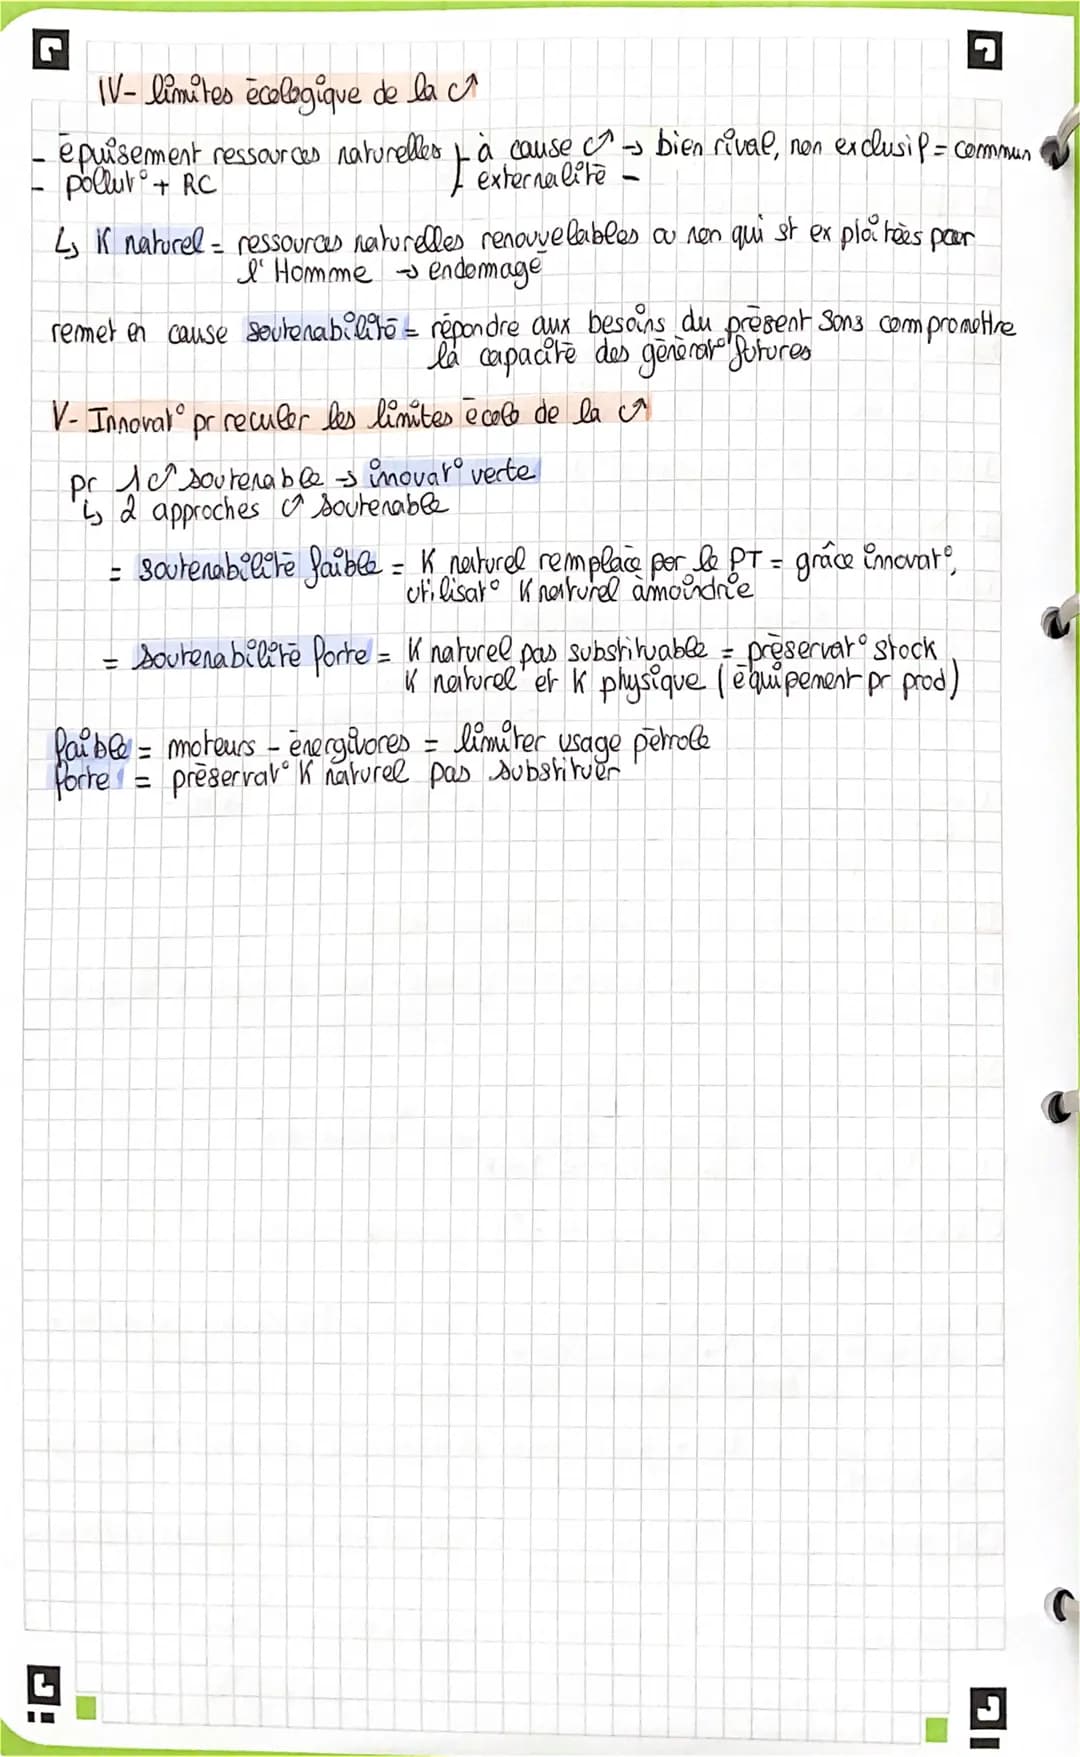 IV- limites écologique de la C↗
- épuisement ressources naturelles } à cause C↗ → bien rival, non exclusif = commun
- pollut° + RC } externalité -
↳ K naturel = ressources naturelles renouvelables ou non qui st exploitées par
l'Homme → endomagé
remet en cause soutenabilité = répondre aux besoins du présent sans compromettre
la capacité des générat° futures
V- Innovat° pr reculer les limites écolo de la C↗
pr 1 C↗ soutenable → inovat° verte
↳ 2 approches C↗ soutenable
= soutenabilité faible = K naturel remplacé par le PT = grâce innovat°,
utilisat° K naturel amoindrie
= soutenabilité forte = K naturel pas substituable = préservat° stock
K naturel et K physique (équipement pr prod)
faible = moteurs - énergivores = limiter usage pétrole
forte = préservat° K naturel pas substituer